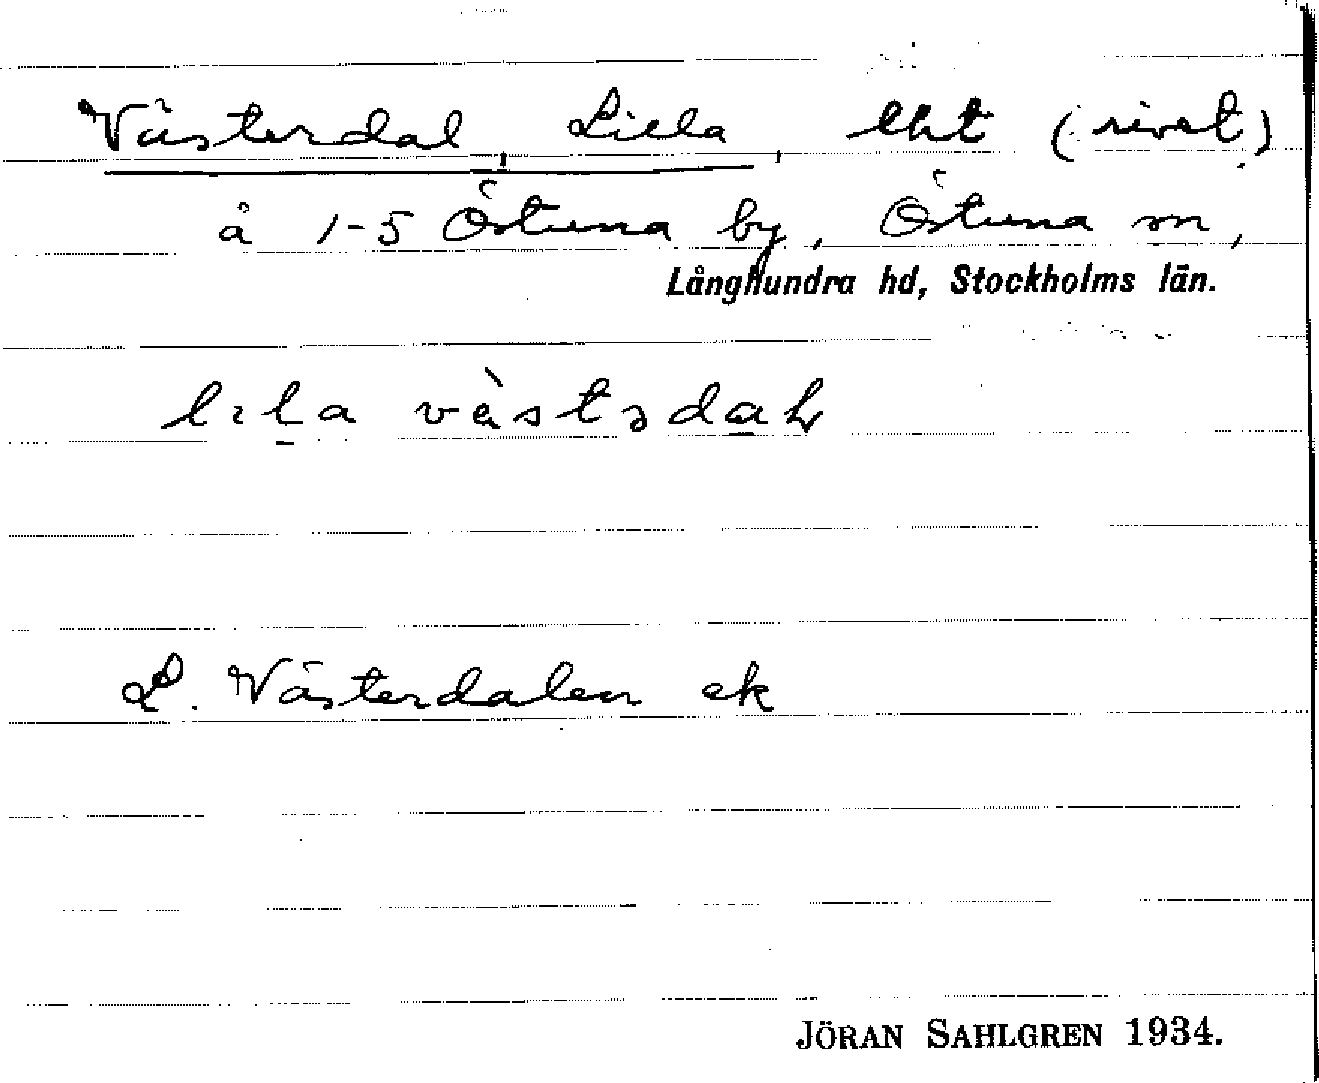 Västerdal, Lilla, lht (rivet)
å 1-5 Östuna by, Östuna sn,
Långhundra hd, Stockholms län.
L. Västerdalen ek
JÖRAN SAHLGREN 1934.